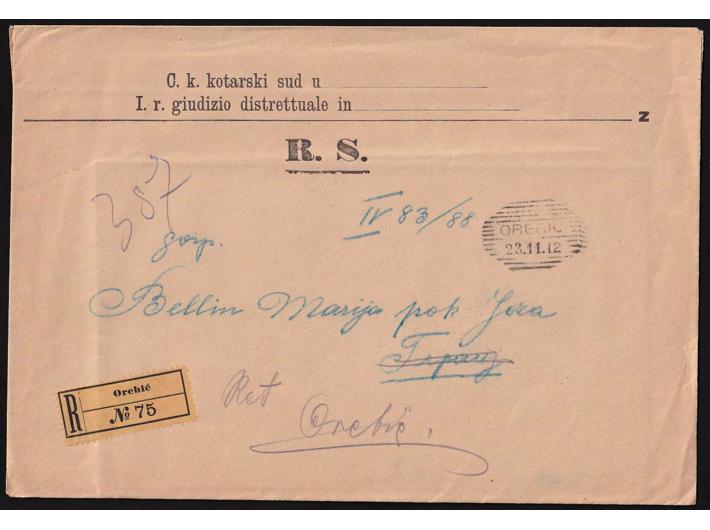 C. k. kotarski sud u
I. r. giudizio distrettuale in
Z
R. S.
387
IV 83/88
OREBIĆ
23.11.12
gosp.
Bellin Marija pok Joza
Orebić
R № 75
Ret
Orebić.